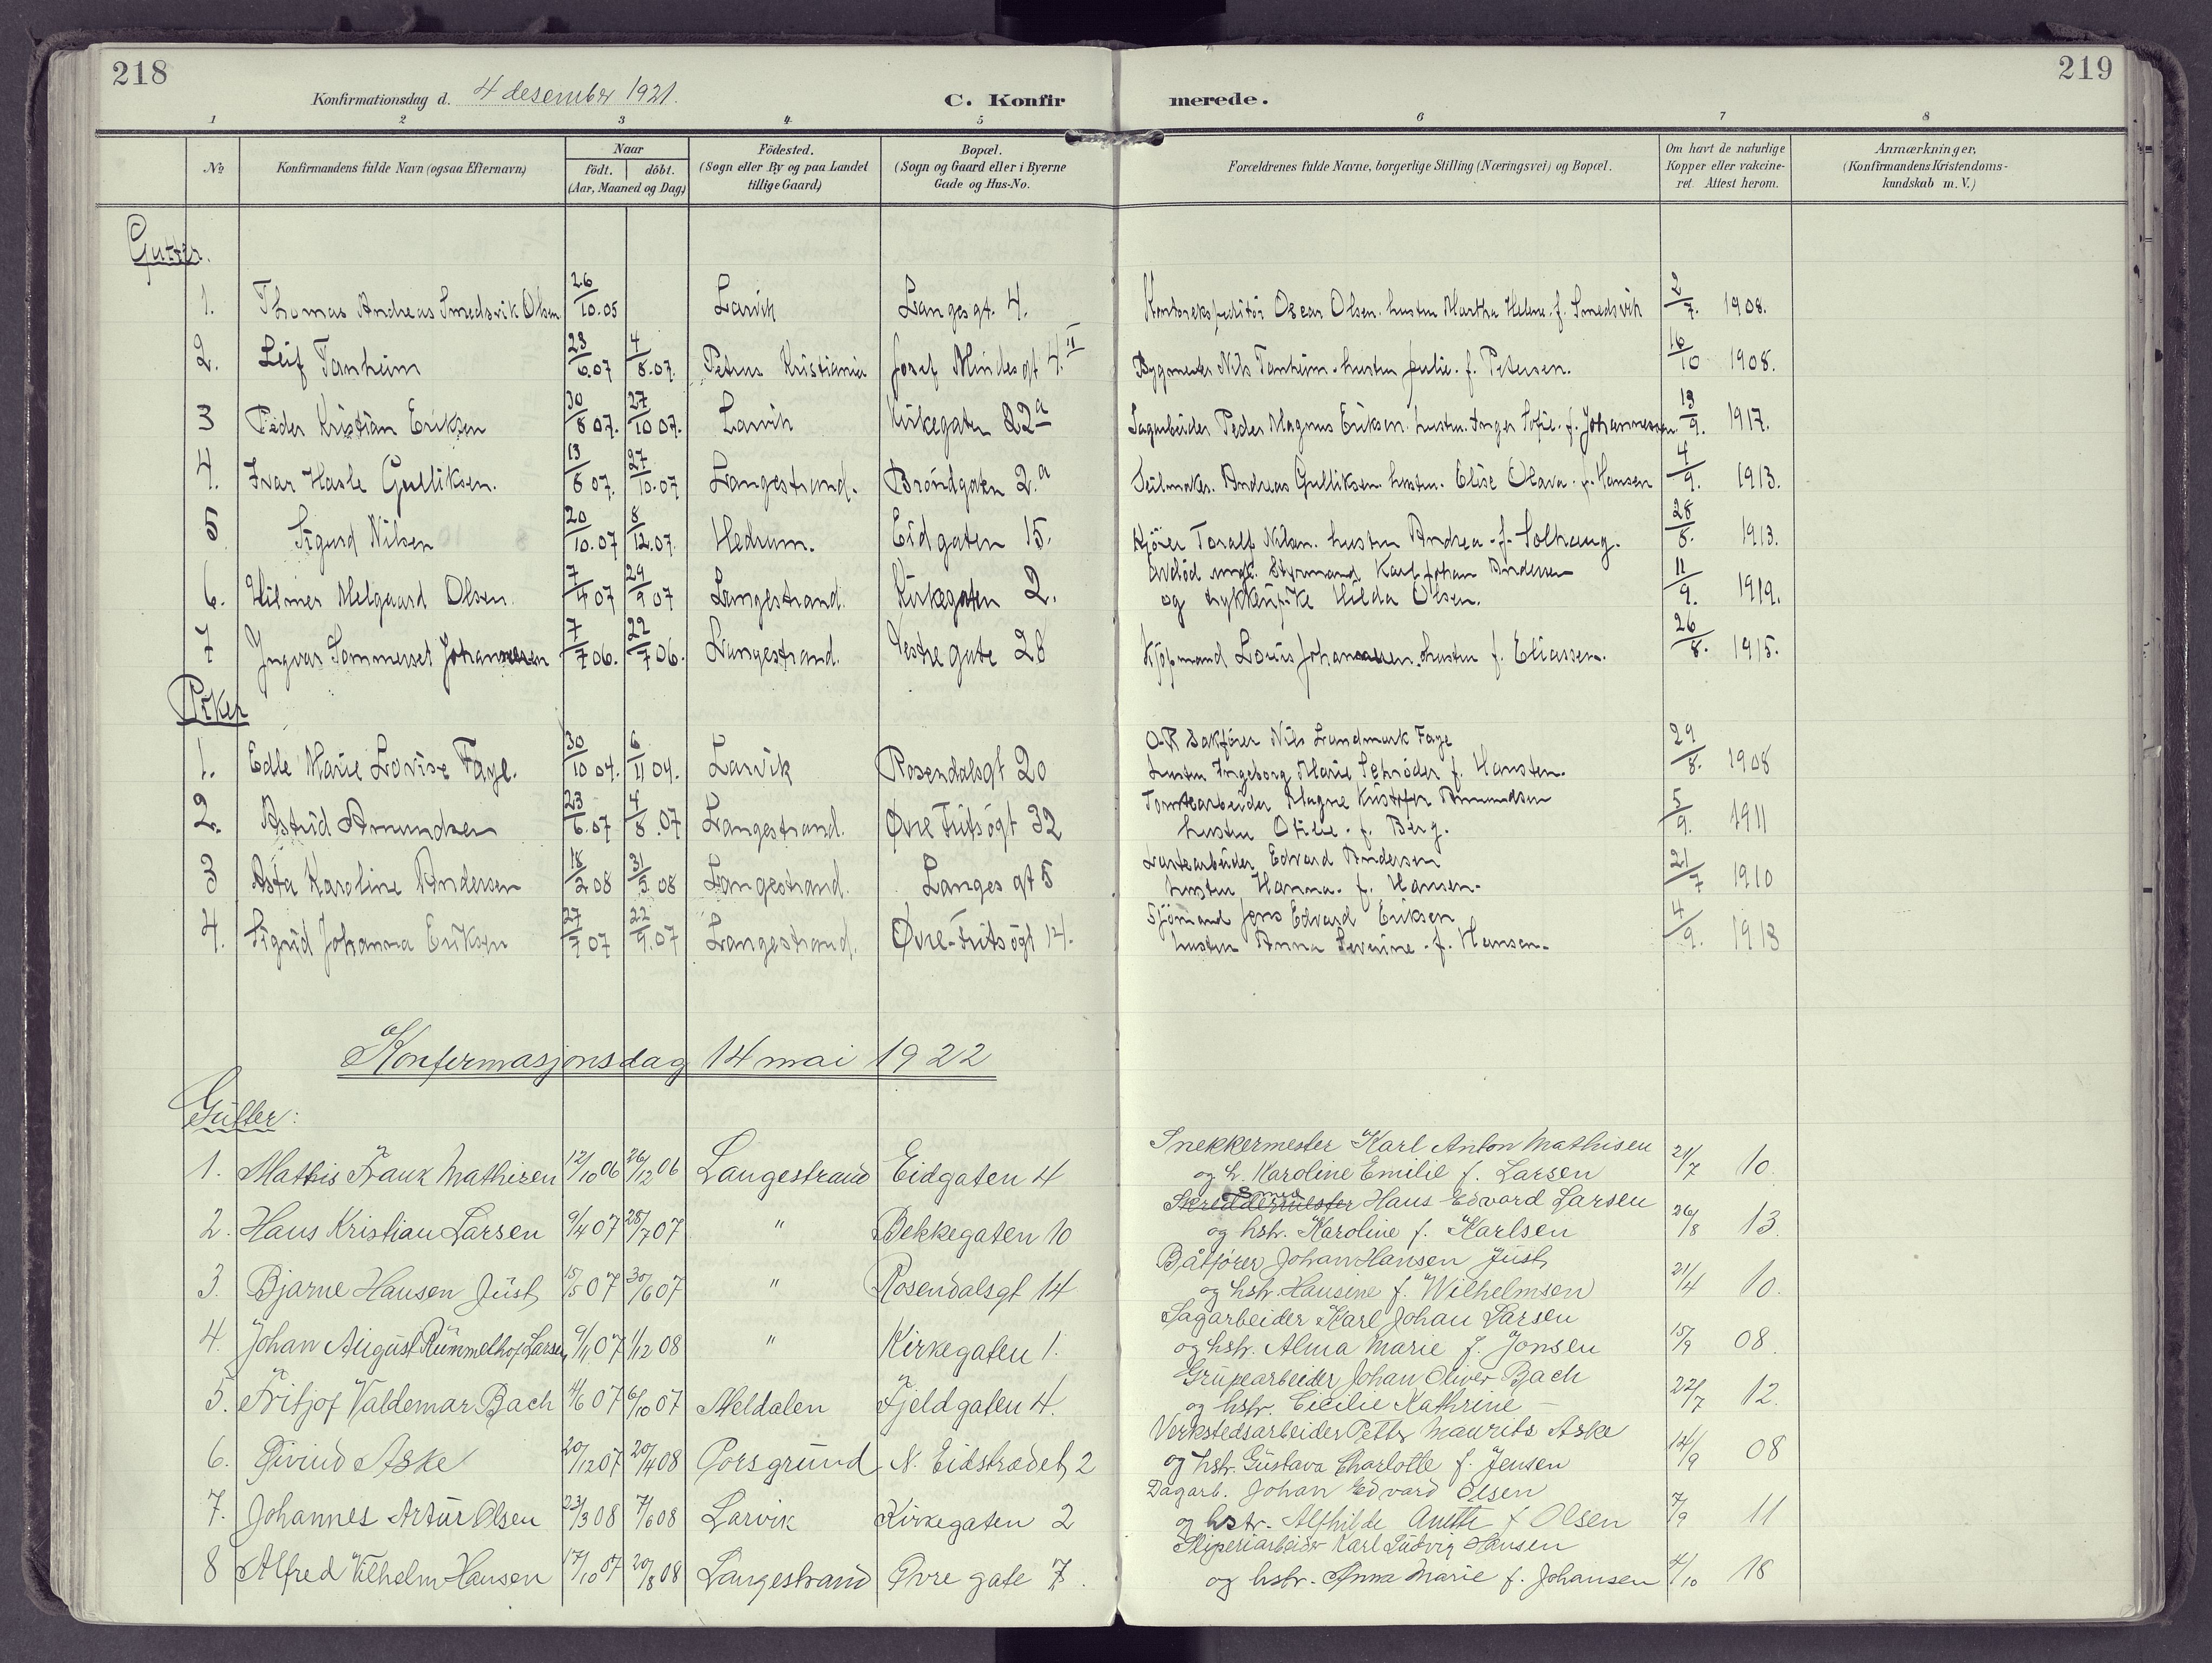 218
219
Konfirmationsdag d. 4 desember 1921.
C. Konfir merede.
1 2 3 4 5 6 7 8
No
Konfirmandens fulde Navn (ogsaa Efternavn)
Naar
födt. döbt.
(Aar, Maaned og Dag)
Födested.
(Sogn eller By og paa Landet
tillige Gaard)
Bopæl.
(Sogn og Gaard eller i Byerne
Gade og Hus-No.
Forældrenes fulde Navne, borgerlige Stilling (Næringsvei) og Bopæl.
Om havt de naturlige
Kopper eller vakcine-
ret. Attest herom.
Anmærkninger,
(Konfirmandens Kristendoms-
kundskab m. V.)
Gutter.
1. Thomas Andreas Smedsvik Olsen 26/10.05 Larvik Langesgt. 4. Kontorekspeditör Oscar Olsen. hustru Martha Helene f. Smedsvik 2/7. 1908.
2. Leif Tanheim 23/6.07 4/8.07. Petrus Kristiania Josef Mindes gt 4. II Bygmester Nils Tanheim. hustru Julie. f. Petersen. 16/10 1908.
3 Peder Kristian Eriksen 30/8 07. 27/10 07. Larvik Kirkegaten 22a Sagarbeider Peder Magnus Eriksen. hustru. Inger Sofie. f. Johannessen. 13/9. 1917.
4. Ivar Hasle Gulliksen. 13/8 07. 27/10.07 Langestrand. Bröndgaten 2.a Seilmaker. Andreas Gulliksen. hustru. Elise Olava. f. Hansen 4/9. 1913.
5 Sigurd Nilsen 20/10.07 8/12.07. Hedrum. Eidgaten 15. Kjörer Toralf Nilsen. hustru Andrea. f. Solhaug. 28/8. 1913.
6. Hilmer Melgaard Olsen. 7/4 07 29/9 07 Langestrand. Kirkegaten 2. avdöd ungk. Styrmand Karl Johan Andersen
og Hilda Olsen. 11/9. 1919.
7 Ingvar Sommersel Johannesen 7/7 06. 22/7 06. Langestrand. Vestre gate 28 Kjöpmand Louis Johannesen. hustru f. Eliassen. 26/8. 1915.
Piker
1. Edle Marie Lovise Faye. 30/10 04. 6/11 04. Larvik Rosendalsgt 20 O.R Sakförer Nils Landmark Faye
hustru Ingeborg Marie Schröder f. Hansten. 29/8. 1908
2. Astrid Amundsen 23/6.07 4/8.07 Langestrand. Øvre Fritsögt 32 Tomtearbeider Magne Kristofer Amundsen
hustru Otilie. f. Berg. 5/9. 1911
3 Asta Karoline Andersen 18/2 08 31/5. 08 Langestrand. Langes gt 5 Lastearbeider Edvard Andersen
hustru Hanna. f. Hansen. 21/7 1910
4. Sigrid Johanna Eriksen 27/7 07 22/9.07 Langestrand. Øvre-Fritsögt 14. Sjömand Jens Edvard Eriksen
hustru Anna Severine. f. Hansen. 4/9. 1913
Konfermasjonsdag 14 mai 1922
Gutter:
1. Mathis Frank Mathisen 12/10 06 26/12 06 Langestrand Eidgaten 4 Snekkermester Karl Anton Mathisen
og h. Karoline Emilie f. Larsen 21/7 10.
2. Hans Kristian Larsen 9/4 07 28/7 07 " Bekkegaten 10 Skreddermester Smed Hans Edvard Larsen
og hstr. Karoline f. Karlsen 26/8 13.
3. Bjarne Hansen Just 15/5 07 30/6 07 " Rosendalsgt 14 Båtförer Johan Hansen Just
og hstr. Hansine f. Wilhelmsen 21/4 10.
4. Johan August Rummelhof Larsen 9/11 07 1/12 08 " Kirkegaten 1. Sagarbeider Karl Johan Larsen
og hstr. Alma Marie f. Jonsen 15/9 08.
5. Fritjof Valdemar Bach 4/6 07 6/10 07 Meldalen Fjeldgaten 4. Grupearbeider Johan Oliver Bach
og hstr. Cicilie Kathrine — 22/7 12.
6. Øivind Aske 20/12 07 20/4 08 Porsgrund N. Eidstrædet 2 Verkstedsarbeider Petter Maurits Aske
og hstr. Gustava Charlotte f. Jensen 14/9 08
7. Johannes Artur Olsen 23/3 08 7/6 08 Larvik Kirkegaten 2 Dagarb. Johan Edvard Olsen
og hstr. Alfhilde Anette f Olsen 7/9 11
8 Alfred Vilhelm Hansen 17/10 07 20/8 08 Langestrand Øvre gate 7. Sliperiarbeider Karl Ludvig Hansen
og hstr. Anna Marie f. Johansen 4/10 18